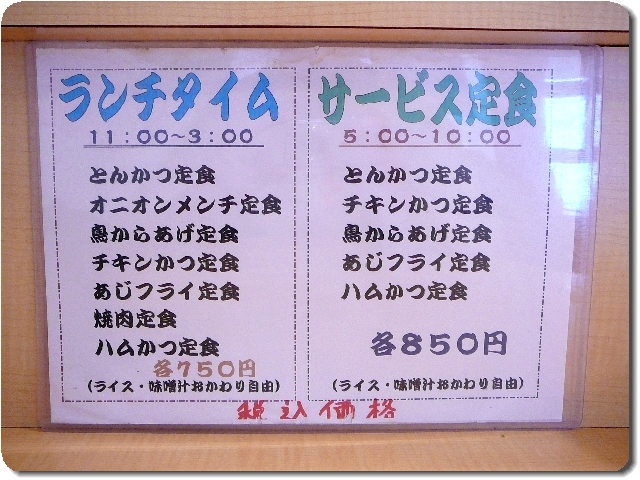 ランチタイム
11:00～3:00
とんかつ定食
オニオンメンチ定食
鳥からあげ定食
チキンかつ定食
あじフライ定食
焼肉定食
ハムかつ定食
各750円
(ライス・味噌汁おかわり自由)
サービス定食
5:00～10:00
とんかつ定食
チキンかつ定食
鳥からあげ定食
あじフライ定食
ハムかつ定食
各850円
(ライス・味噌汁おかわり自由)
税込価格